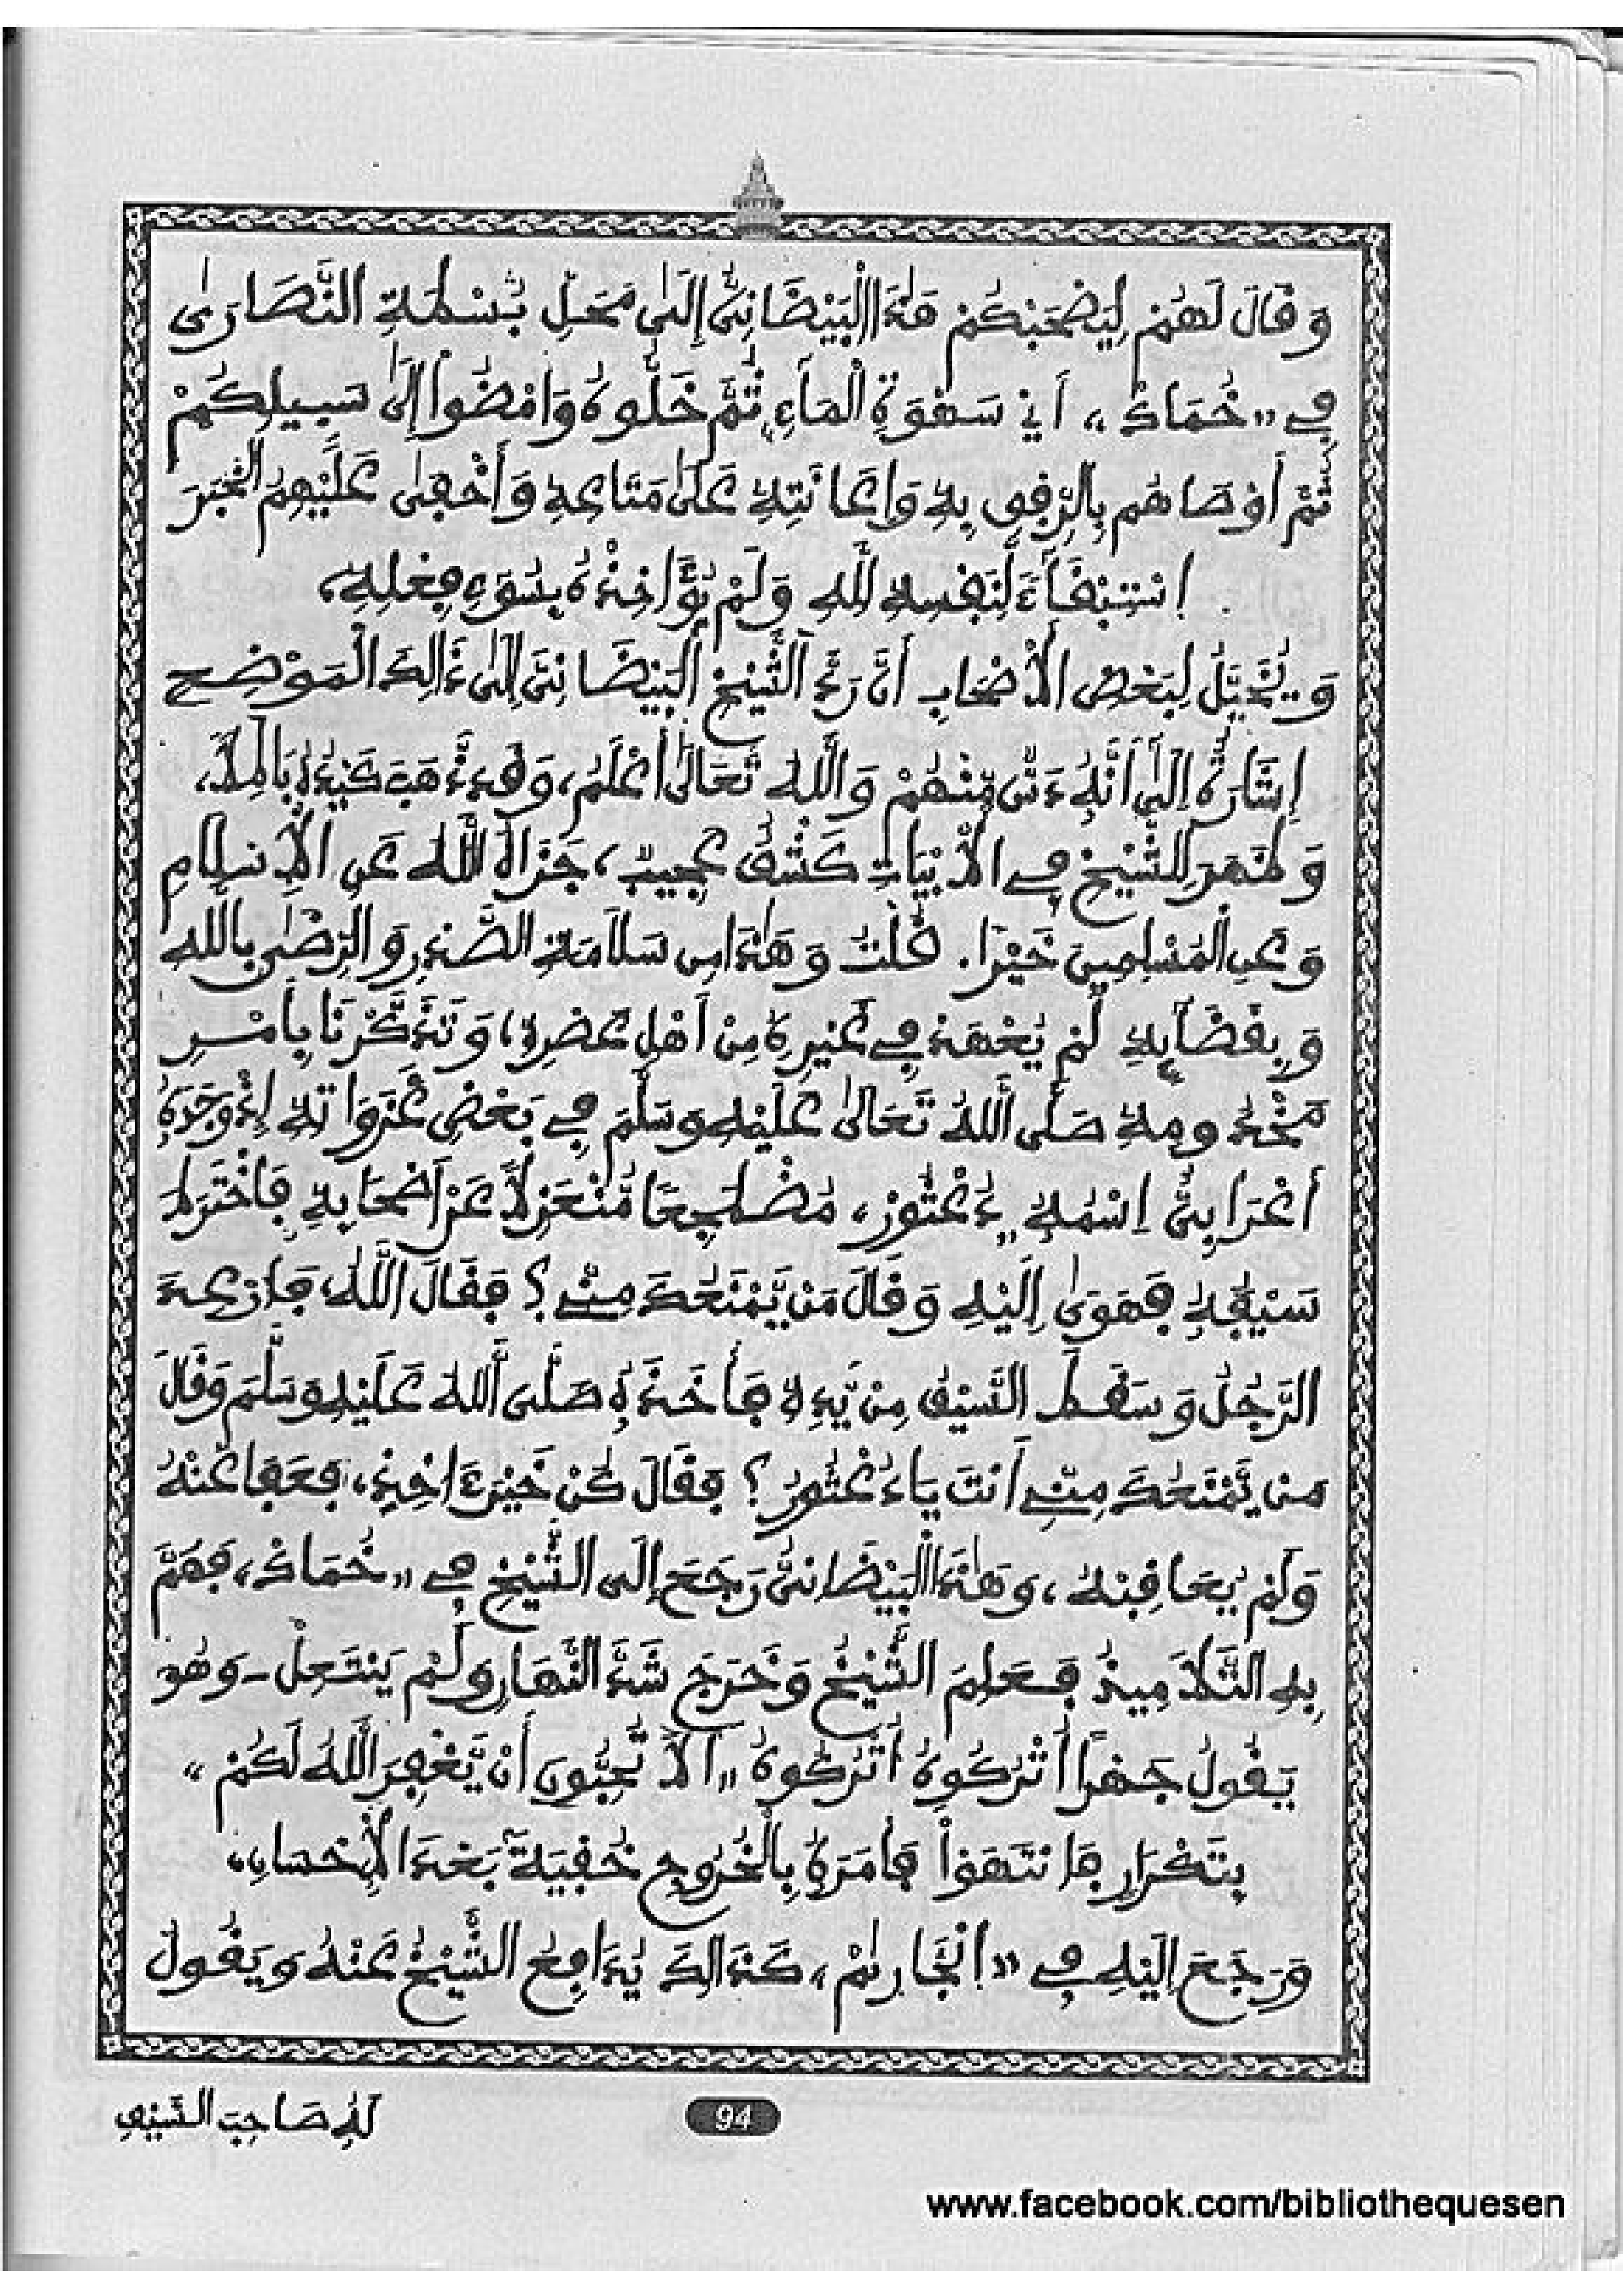 وَقَالَ لَهُمْ لِيَصْحَبْكُمْ هَٰذَا الْبَيْضَانِيُّ إِلَىٰ مَحَلِّ بُسْطَةِ النَّصَارَىٰ
فِي «خُمَاذْ» أَيْ سَهْوَةِ الْمَآءِ ثُمَّ خَلُّوهُ وَامْضُواْ إِلَىٰ سَبِيلِكُمْ
ثُمَّ أَوْصَاهُم بِالرِّفْقِ بِهِ وَإِعَانَتِهِ عَلَىٰ مَتَاعِهِ وَأَخْفَىٰ عَلَيْهِمُ الْخَبَرَ
لِنَفْسِهِ لِلَّهِ وَلَمْ يُؤَاخِذْهُ بِسُوٓءِ فِعْلِهِ،
وَيُخَيَّلُ لِبَعْضِ الْأَصْحَابِ أَنَّ رَدَّ الشَّيْخِ الْبَيْضَانِيَّ إِلَىٰ ذَالِكَ الْمَوْضِعِ
إِشَارَةٌ إِلَىٰ أَنَّهُ دَسٌّ مِّنْهُمْ وَاللَّهُ تَعَالَىٰ أَعْلَمُ، وَقَدْ ذَهَبَ كَيْدُهُ بَاطِلًا،
وَظَهَرَ لِلشَّيْخِ فِي الْأَبْيَاتِ كَشْفٌ عَجِيبٌ، جَزَاهُ اللَّهُ عَنِ الْإِسْلَامِ
وَعَنِ الْمُسْلِمِينَ خَيْرًا. قُلْتُ وَهَٰذَا مِن سَلَامَةِ الصَّدْرِ وَالرِّضَىٰ بِاللَّهِ
وَبِقَضَآئِهِ لَمْ يُعْهَدْ فِي غَيْرِهِ مِنْ أَهْلِ عَصْرِهِ، وَتَذَكَّرْنَا بِأَمْرِ
مَخْدُومِهِ صَلَّى اللَّهُ تَعَالَىٰ عَلَيْهِ وَسَلَّمَ فِي بَعْضِ غَزَوَاتِهِ إِذْ وَجَدَهُ
أَعْرَابِيٌّ اِسْمُهُ دُعْثُورٌ، مُضْطَجِعًا مُّنْعَزِلًا عَنْ أَصْحَابِهِ فَاخْتَرَطَ
سَيْفَهُ فَهَوَىٰ إِلَيْهِ وَقَالَ مَن يَّمْنَعُكَ مِنِّي؟ فَقَالَ اللَّهُ، فَارْتَعَدَ
الرَّجُلُ وَسَقَطَ السَّيْفُ مِن يَّدِهِ فَأَخَذَهُ صَلَّى اللَّهُ عَلَيْهِ وَسَلَّمَ وَقَالَ
مَن يَّمْنَعُكَ مِنِّي أَنتَ يَا دُعْثُورُ؟ فَقَالَ كُنْ خَيْرَ ءَاخِذٍ، فَعَفَا عَنْهُ
وَلَمْ يُعَاقِبْهُ، وَهَٰذَا الْبَيْضَانِيُّ رَجَعَ إِلَى الشَّيْخِ فِي «خُمَاذْ»، فَهَمَّ
بِهِ التَّلَامِيذُ فَعَلِمَ الشَّيْخُ وَخَرَجَ شَدَّ النَّهَارِ وَلَمْ يَنْتَعِلْ - وَهُوَ
يَقُولُ جَهْرًا أُتْرُكُوهُ أُتْرُكُوهُ «أَلَا تُحِبُّونَ أَنْ يَّغْفِرَ اللَّهُ لَكُمْ»
بِتَكْرَارٍ فَانتَهَوْاْ فَأَمَرَهُ بِالْخُرُوجِ خُفْيَةً بَعْدَ الْإِحْسَانِ،
وَرَجَعَ إِلَيْهِ فِي «انْجَارِمْ»، كَذَالِكَ يُدَافِعُ الشَّيْخُ عَنْهُ وَيَقُولُ
94
www.facebook.com/bibliothequesen